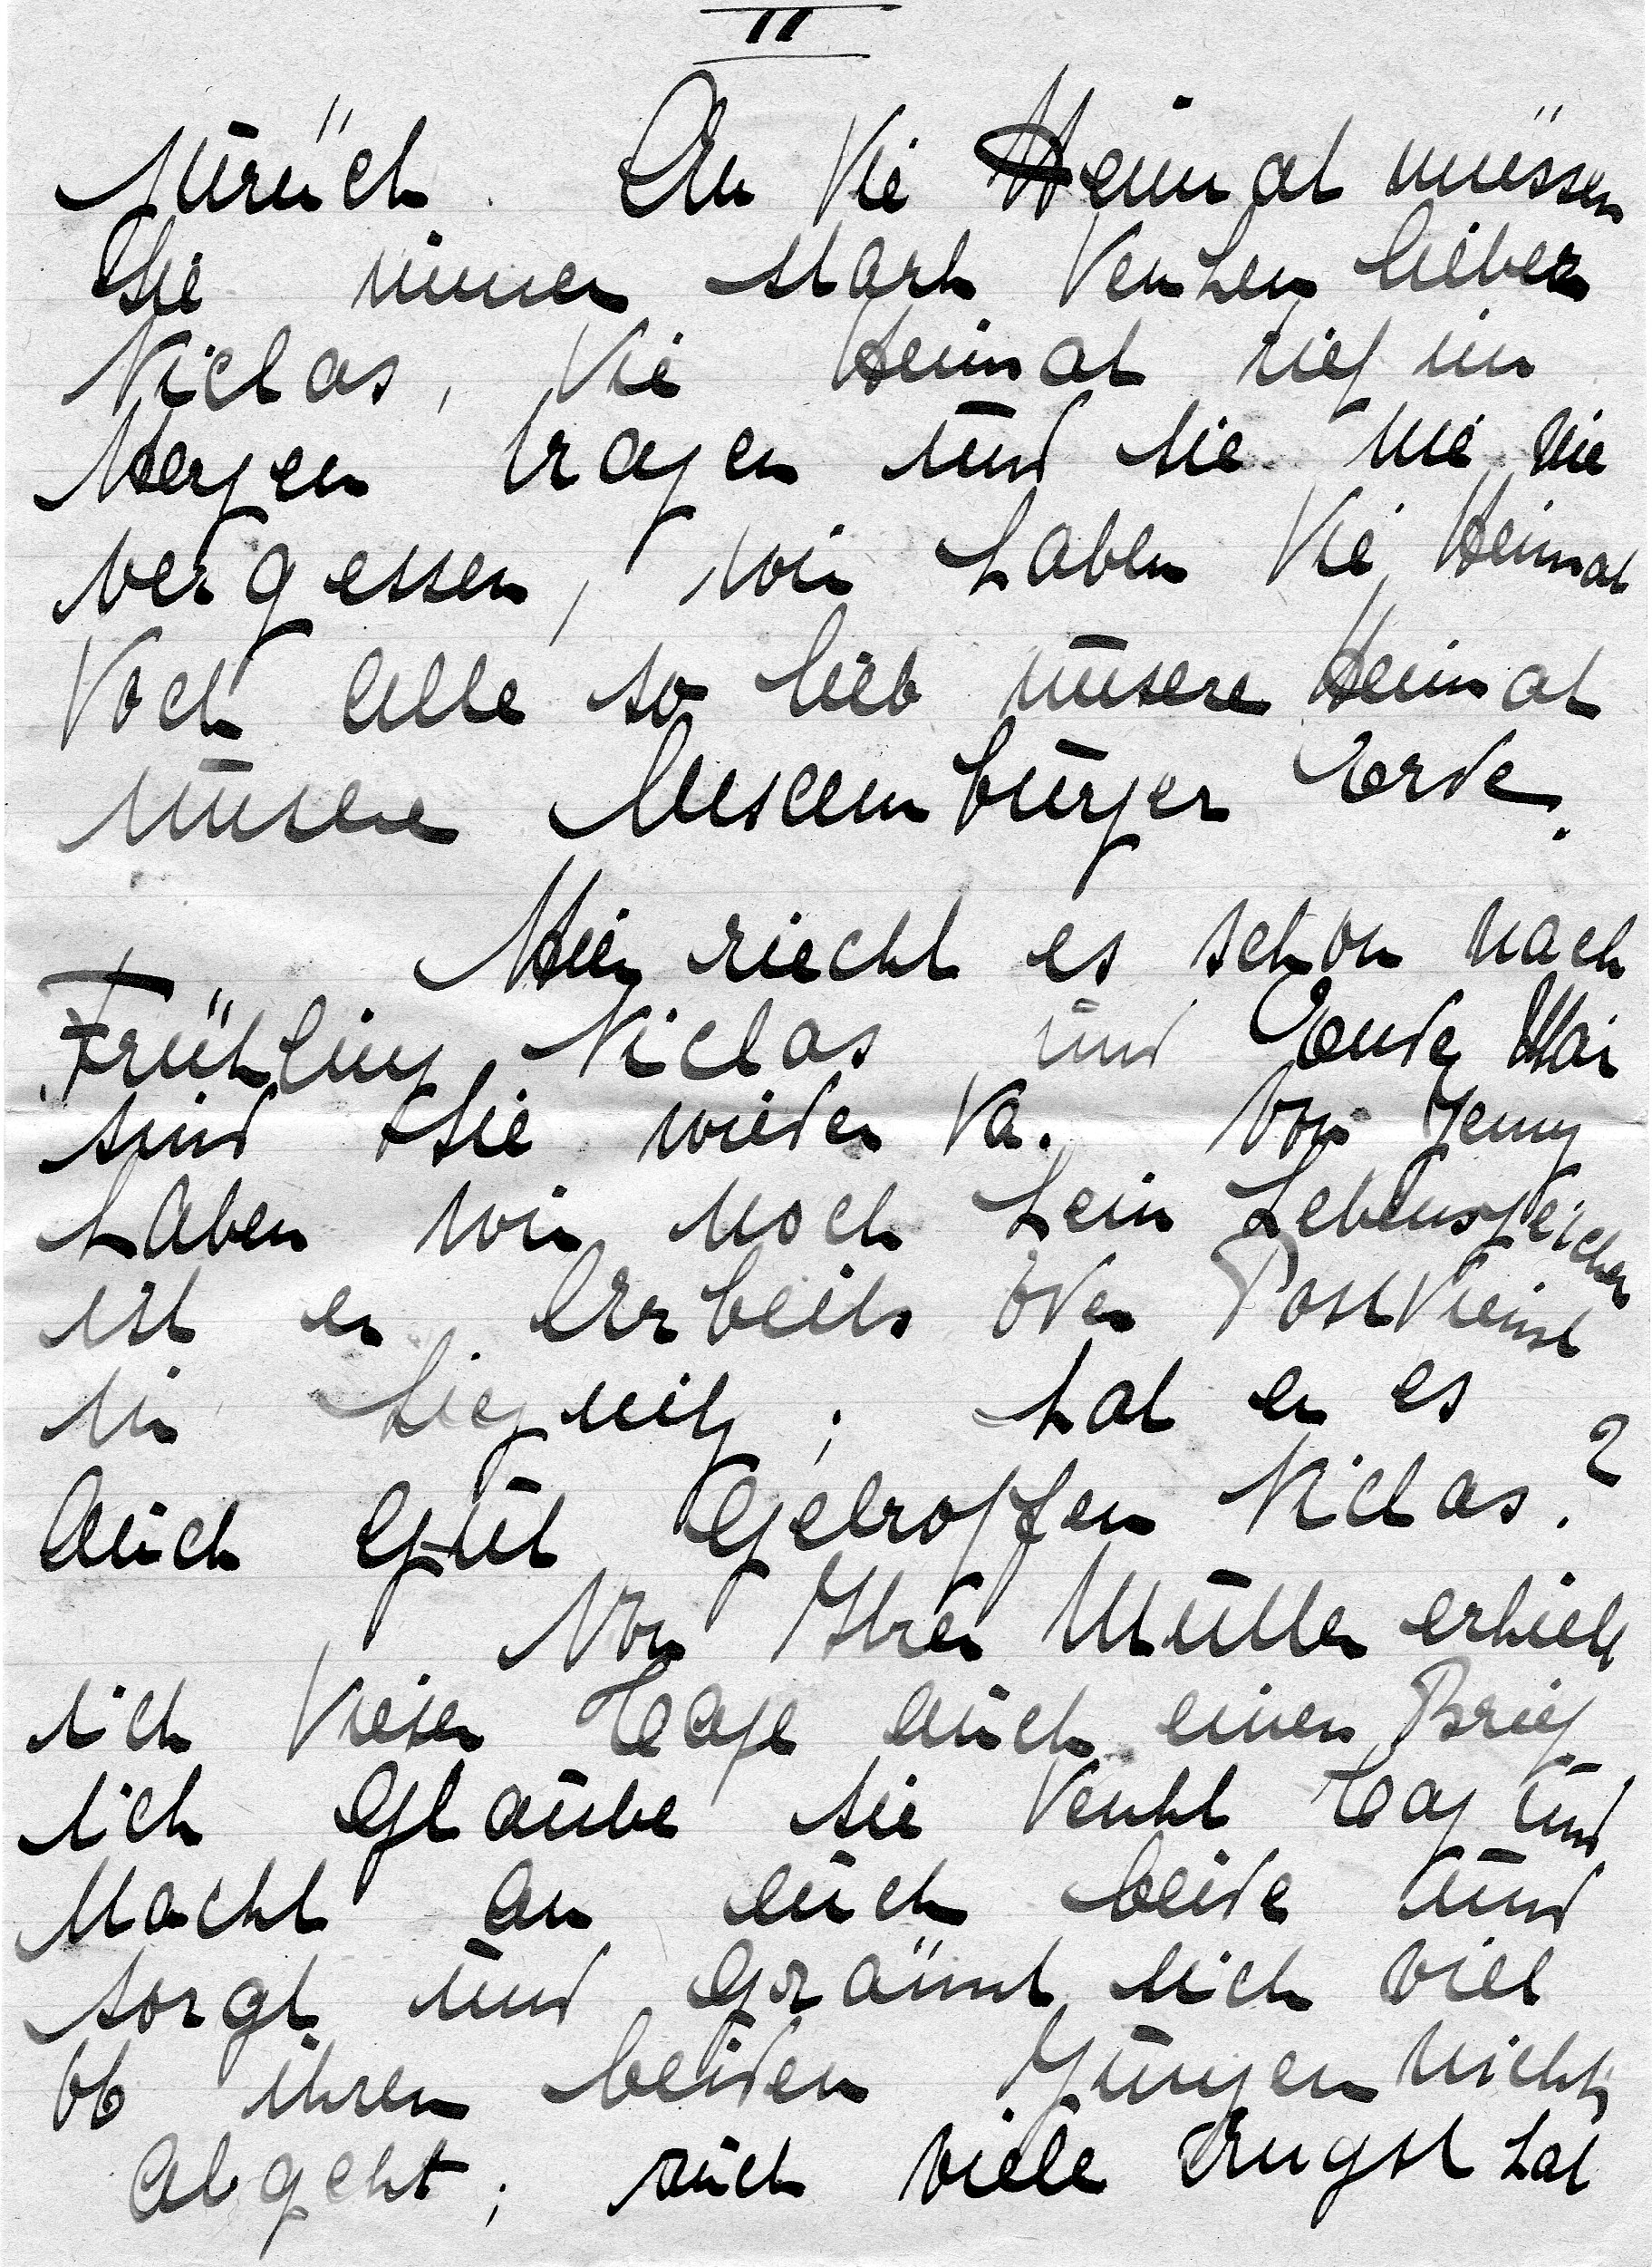 II
zurück. An die Heimat müssen
Sie immer stark denken lieber
Niclas, die Heimat tief im
Herzen tragen und sie nie, nie
vergessen, wir haben die Heimat
doch alle so lieb unsere Heimat
unsere Luxemburger Erde.
Hier riecht es schon nach
Frühling Niclas und Ende Mai
sind Sie wieder da. Von Jenny
haben wir noch kein Lebenszeichen
ist er Arbeits oder Postdienst
in Liegnitz; hat er es
auch gut getroffen Niclas?
Von Ihrer Mutter erhielt
ich dieser Tage auch einen Brief
ich glaube sie denkt Tag und
Nacht an euch beide und
sorgt und grämt sich viel
ob ihren beiden Jungen nichts
abgeht; auch viele Angst hat